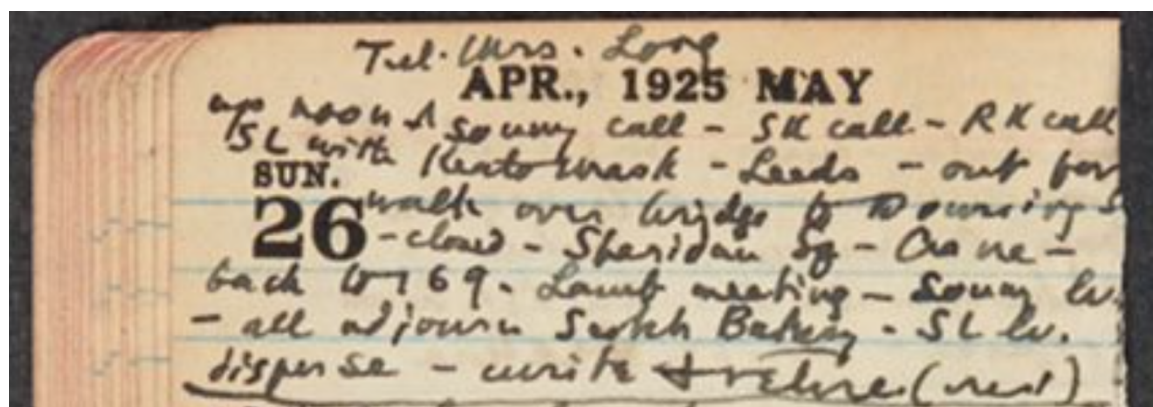 Tel. Mrs. Long
APR., 1925 MAY
up noon & Sonny call - SK call - RK call
SL with - Leeds - out for
SUN.
walk over bridge to
26 - closed - Sheridan Sq - Crane -
back to 169 - Lamb meeting - Sonny lv.
- all adjourn Scotch Bakery - SL lv.
disperse - write & retire (next)